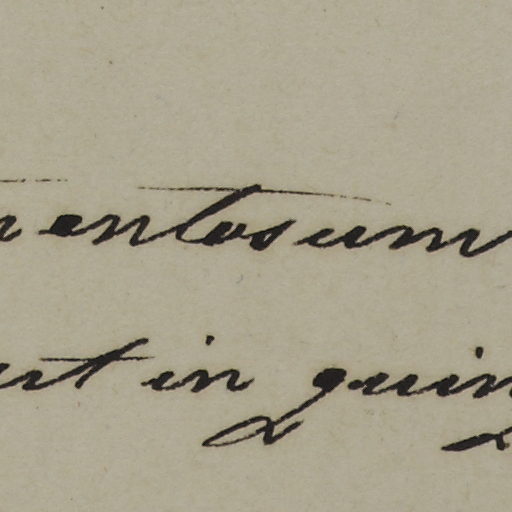 mentosum
urt in quin